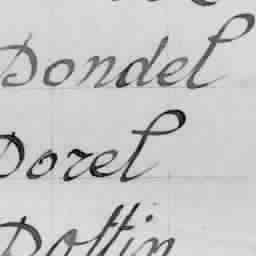 Dondel
Dorel
Dottin